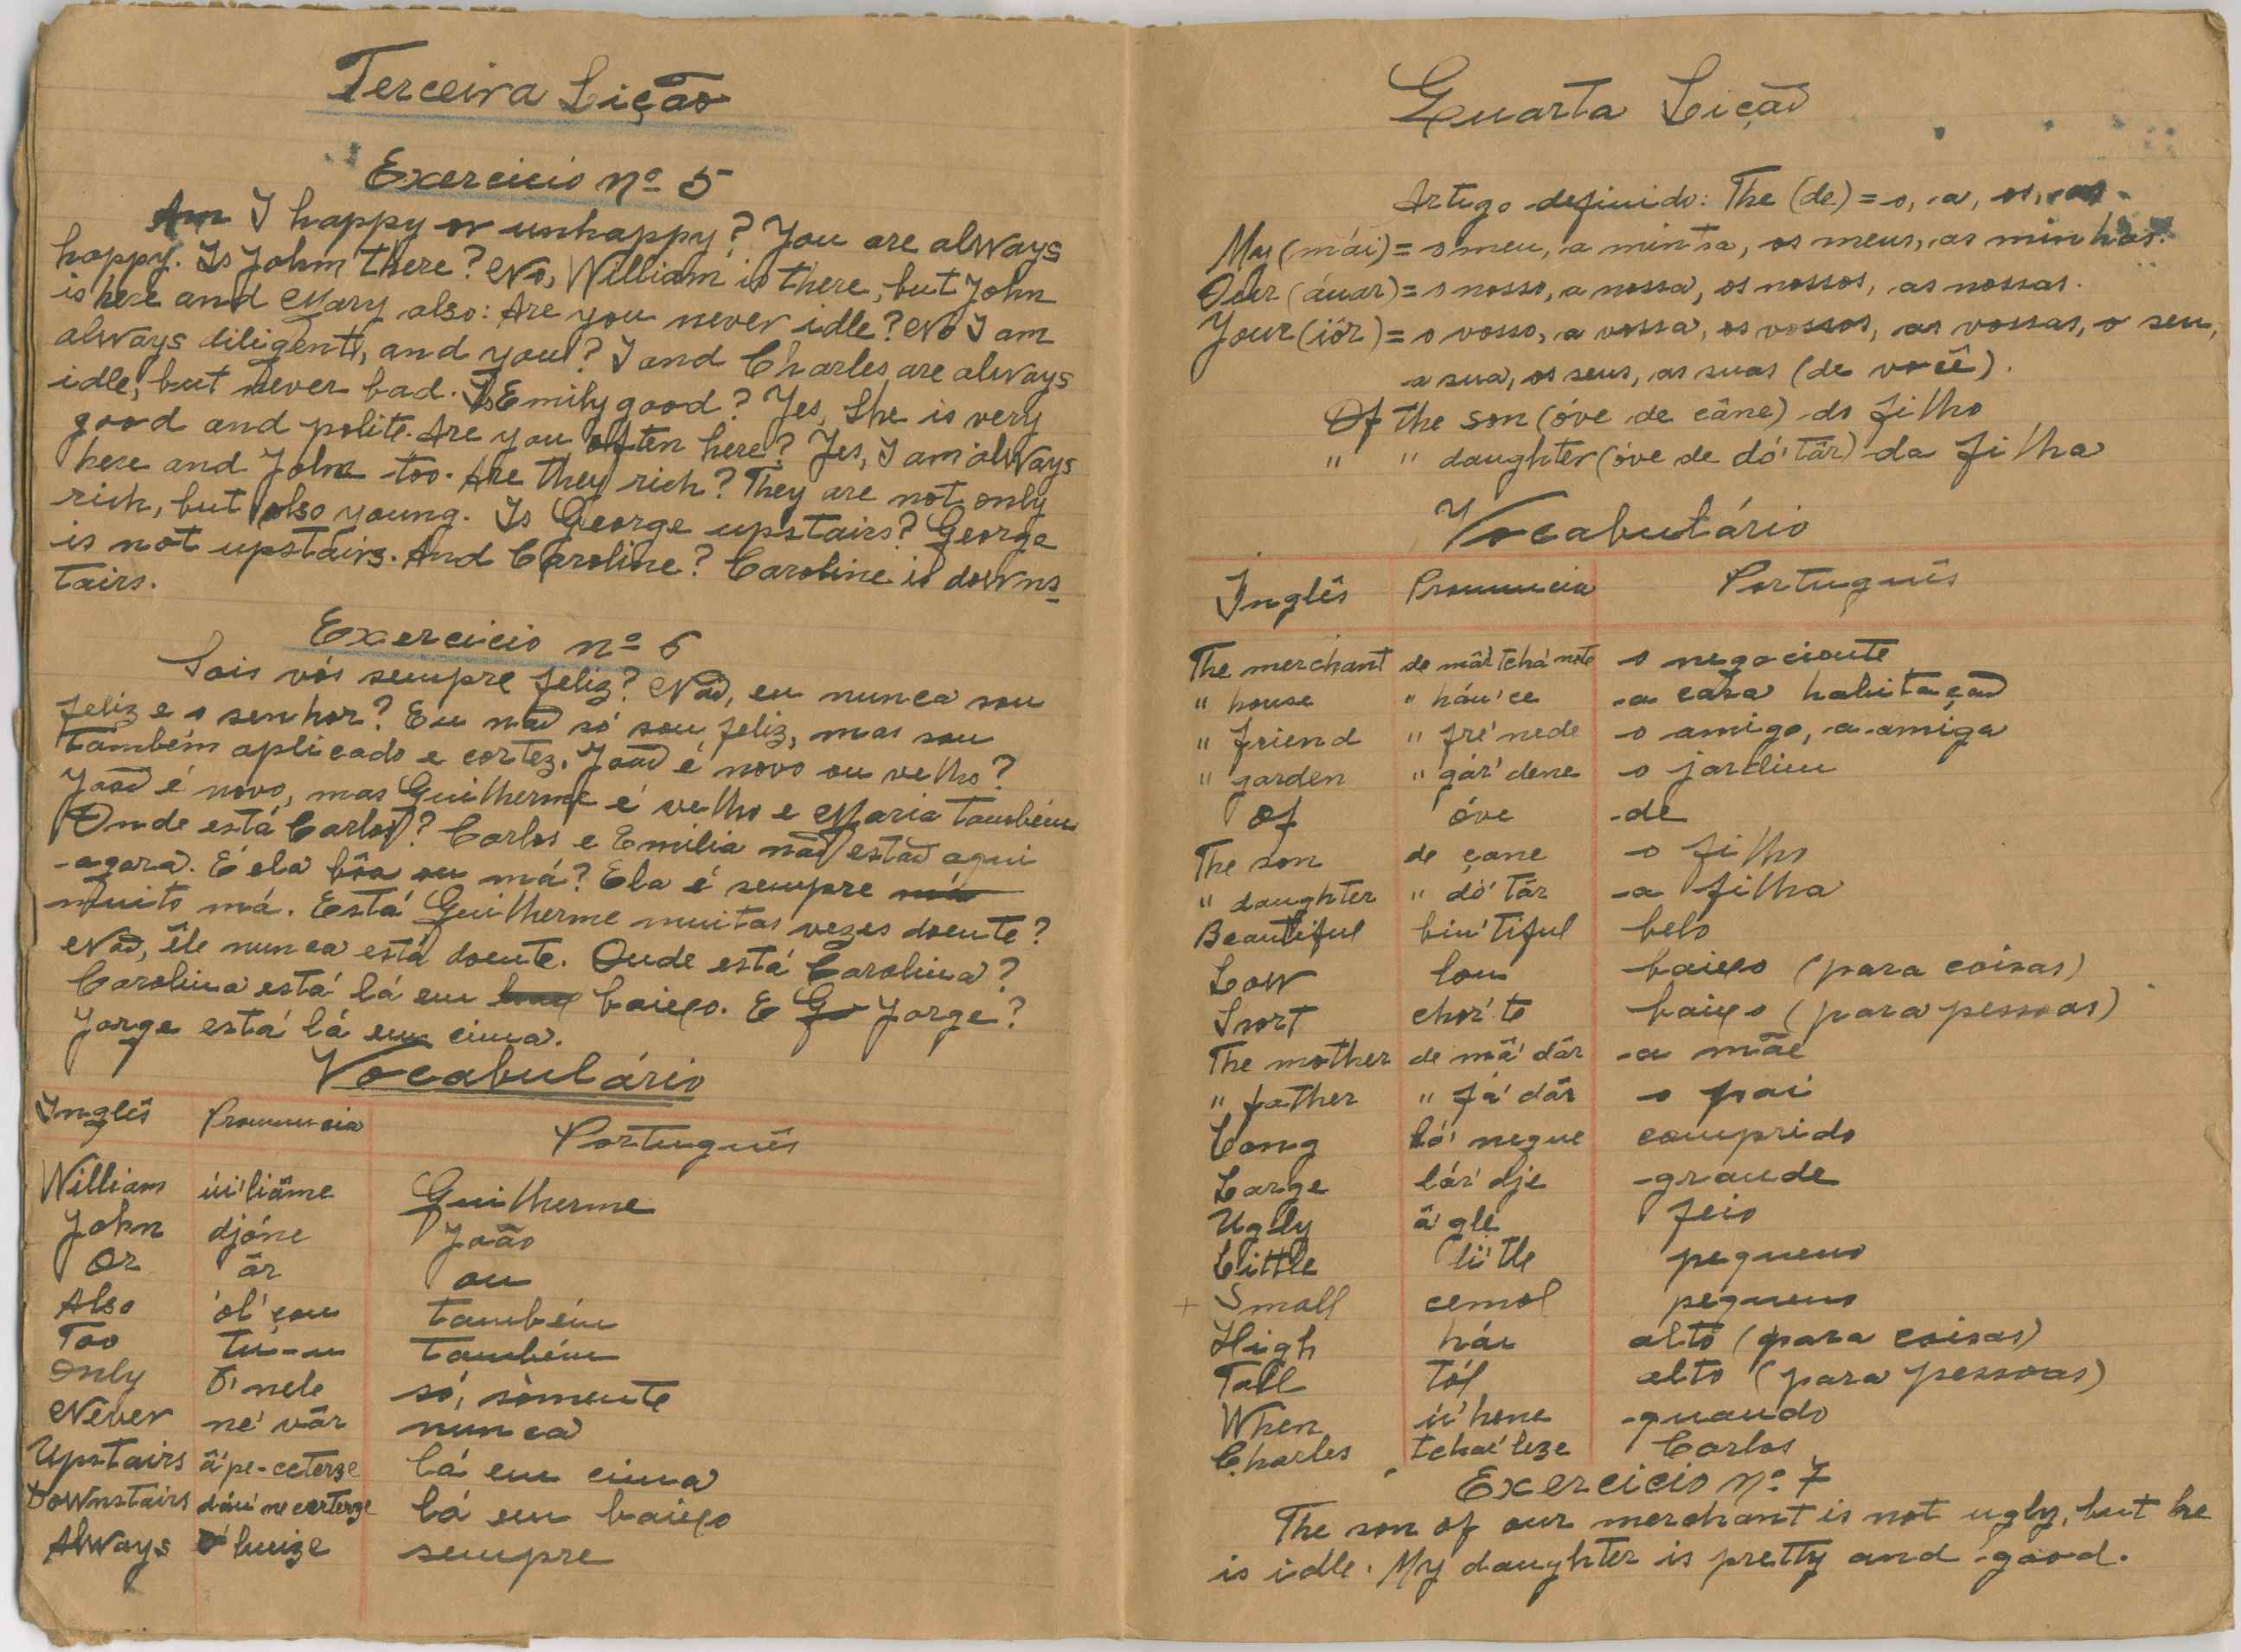 Terceira Lição
Exercicio nº 5
Am I happy or unhappy? You are always
happy. Is John there? No, William is there, but John
is here and Mary also: Are you never idle? No I am
always diligent, and you? I and Charles are always
idle, but never bad. Is Emily good? Yes, She is very
good and polite. Are you often here? Yes, I am always
here and John too. Are they rich? They are not only
rich, but also young. Is George upstairs? George
is not upstairs. And Caroline? Caroline is downs-
tairs.
Exercicio nº 6
Sois vós sempre feliz? Não, eu nunca sou
feliz e o senhor? Eu não só sou feliz, mas sou
também aplicado e cortez. João é novo ou velho?
João é novo, mas Guilherme é velho e Maria também
Onde está Carlos? Carlos e Emilia não estão aqui
agora. É ela bôa ou má? Ela é sempre má
muito má. Está Guilherme muitas vezes doente?
Não, êle nunca está doente. Onde está Carolina?
Carolina está lá em baixo. E Jorge?
Jorge está lá em cima.
Vocabulário
Inglês Pronuncia Português
William úi'liãme Guilherme
John djóne João
Or âr ou
Also ól'çou também
Too tú-u também
Only ô'nele só, sòmente
Never né'vâr nunca
Upstairs â'pe-ceterze lá em cima
Downstairs dáu'neceterze lá em baixo
Always ó'lueize sempre
Quarta Lição
Artigo definido: The (de) = o, a, os, as.
My (mái) = o meu, a minha, os meus, as minhas.
Our (áuar) = o nosso, a nossa, os nossos, as nossas.
Your (iór) = o vosso, a vossa, os vossos, as vossas, o seu,
a sua, os seus, as suas (de você).
Of the son (óve de câne) do filho
" " daughter (óve de dó'târ) da filha
Vocabulário
Inglês Pronuncia Português
The merchant de mâr'tchânete o negociante
" house " háu'ce a casa habitação
" friend " fré'nede o amigo, a amiga
" garden " gár'dene o jardim
Of óve de
The son de çane o filho
" daughter " dó'târ a filha
Beautiful biu'tiful belo
Low lou baixo (para coisas)
Snort chór'te baixo (para pessoas)
The mother de mâ'dâr a mãe
" father " fá'dâr o pai
Long ló'negue comprido
Large lár'dje grande
Ugly â'gle feio
Little lí'tle pequeno
+ Small cemol pequeno
High hái alto (para coisas)
Tall tól alto (para pessoas)
When úu'hene quando
Charles tchár'leze Carlos
Exercicio nº 7
The son of our merchant is not ugly, but he
is idle. My daughter is pretty and good.